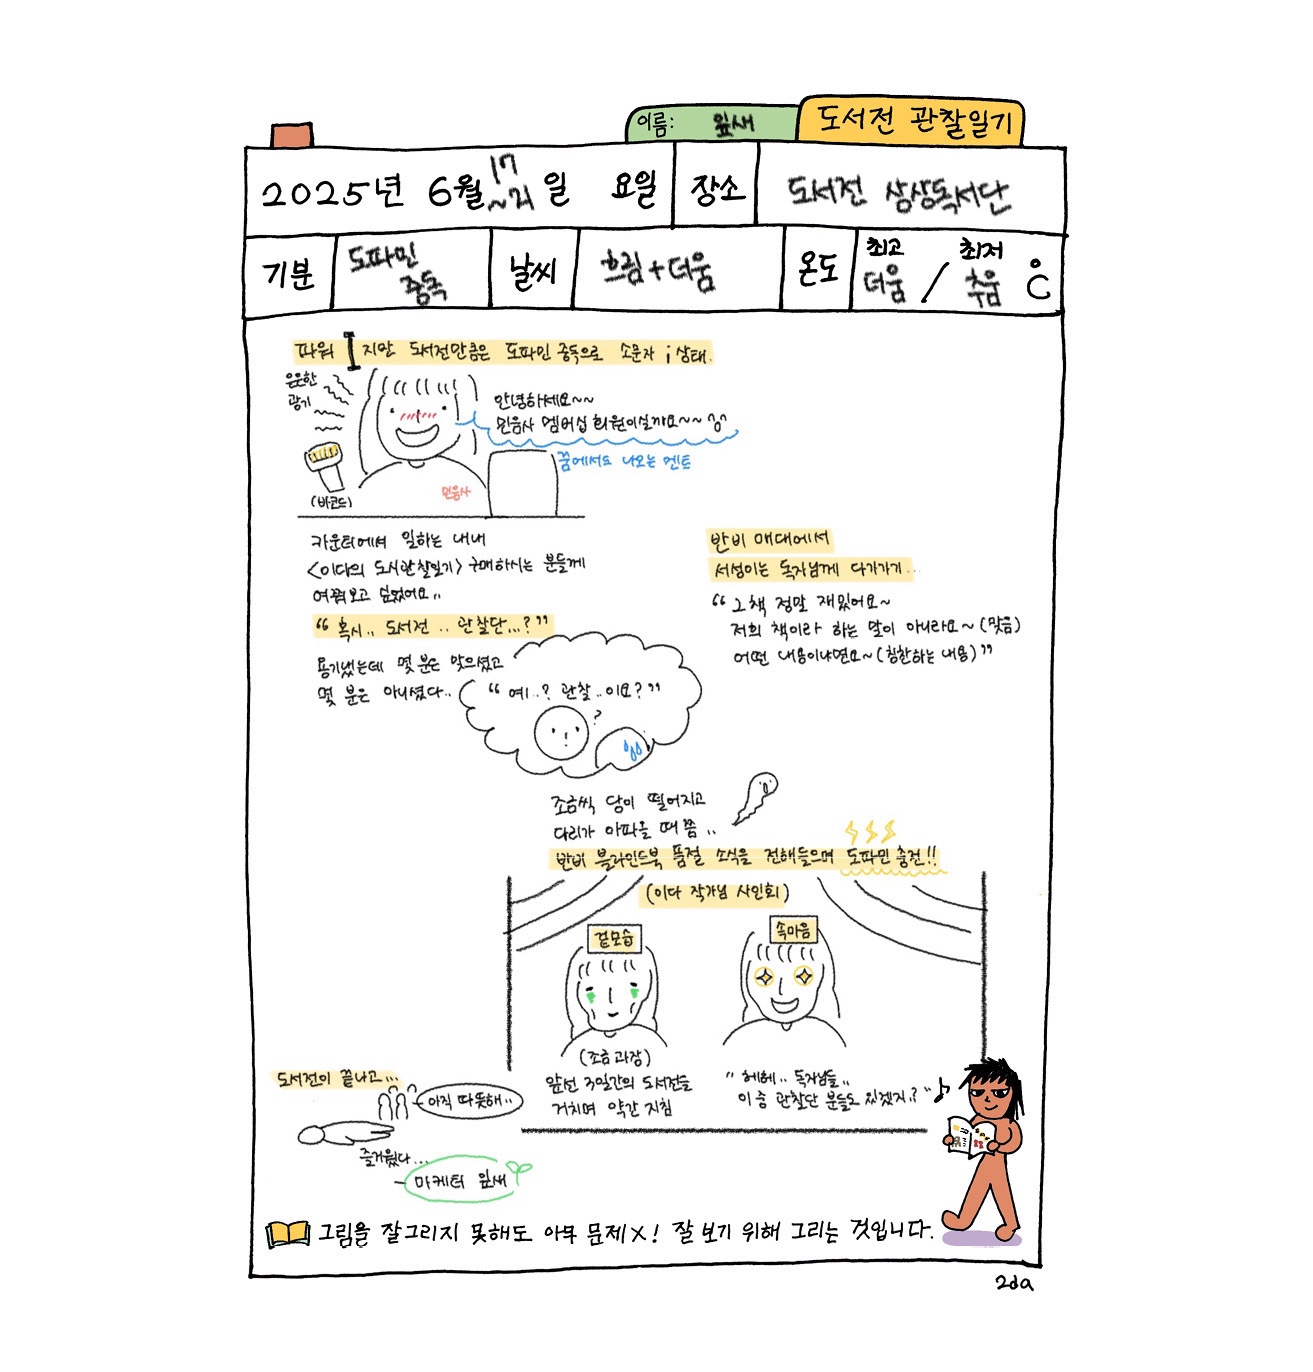 도서전 관찰일기
이름: 잎새
2025년 6월 17~21일 요일
장소 도서전 상상독서단
기분 도파민 중독
날씨 흐림+더움
온도 최고 더움 / 최저 추움 ℃
파워 I지만 도서전만큼은 도파민 중독으로 소문자 i 상태.
은은한
광기
(바코드)
안녕하세요~~
민음사 멤버십 회원이실까요~~ ^^
꿈에서도 나오는 멘트
민음사
카운터에서 일하는 내내
<이다의 도시관찰일기> 구매하시는 분들께
여쭤보고 싶었어요..
"혹시.. 도서전.. 관찰단...?"
용기냈는데 몇 분은 맞으셨고
몇 분은 아니셨다..
"예..? 관찰..이요?"
?
반비 매대에서
서성이는 독자님께 다가가기...
"그 책 정말 재밌어요~
저희 책이라 하는 말이 아니라요~(맞음)
어떤 내용이냐면요~(칭찬하는 내용)"
조금씩 당이 떨어지고
다리가 아파올 때쯤..
반비 블라인드북 품절 소식을 전해들으며 도파민 충전!!
(이다 작가님 사인회)
겉모습
(조금 과장)
앞선 3일간의 도서전을
거치며 약간 지침
속마음
"헤헤.. 독자님들..
이 중 관찰단 분들도 있겠지.?"
도서전이 끝나고...
아직 따뜻해..
즐거웠다...
- 마케터 잎새
그림을 잘그리지 못해도 아무 문제X! 잘 보기 위해 그리는 것입니다.
2da